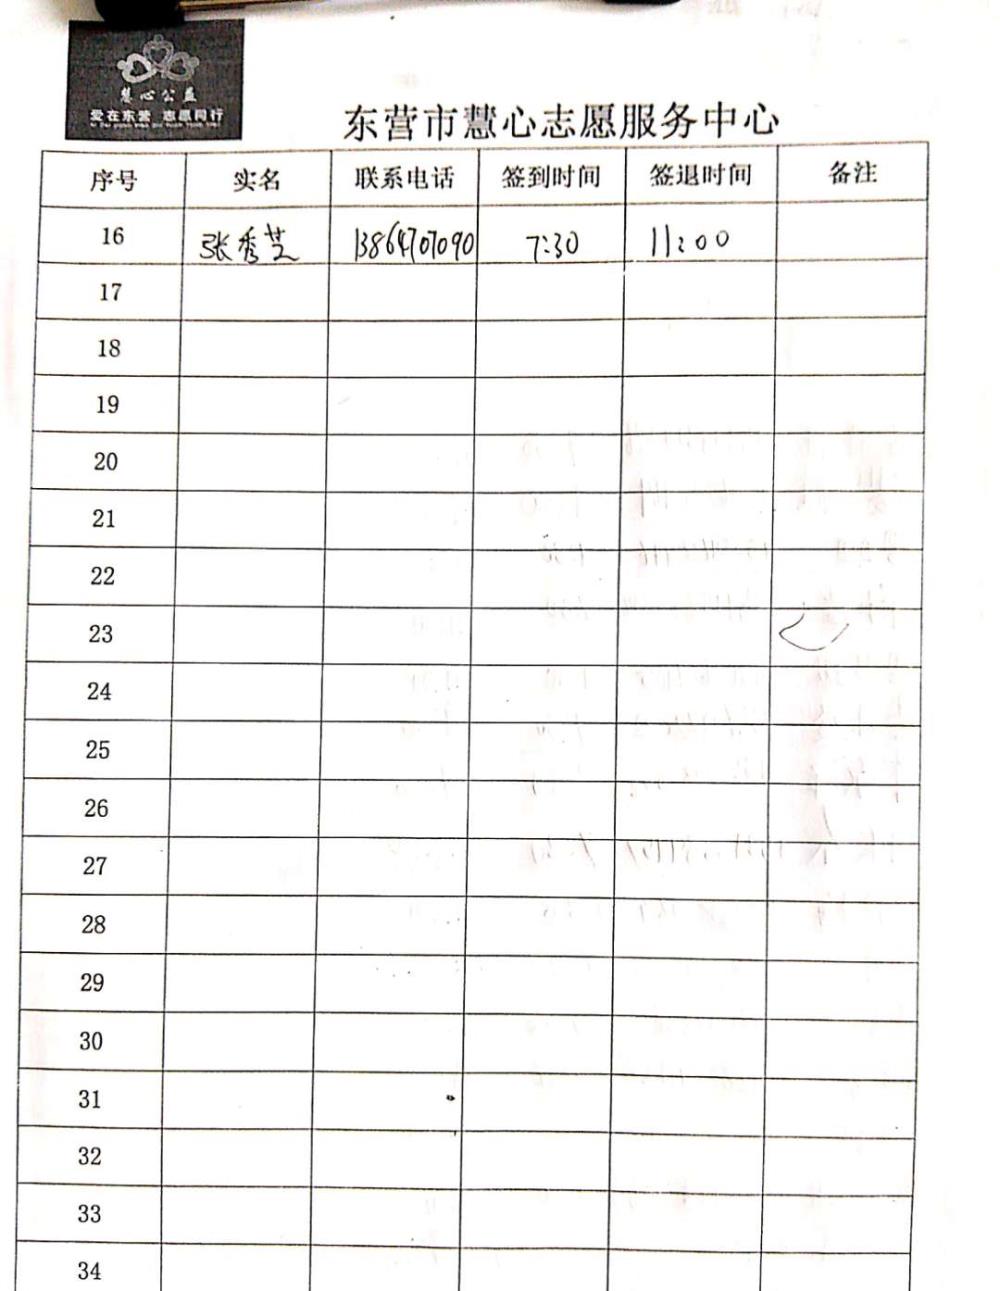 慧心公益
爱在东营 志愿同行
东营市慧心志愿服务中心
序号 实名 联系电话 签到时间 签退时间 备注
16 张秀芝 13864707090 7:30 11:00
17
18
19
20
21
22
23
24
25
26
27
28
29
30
31
32
33
34